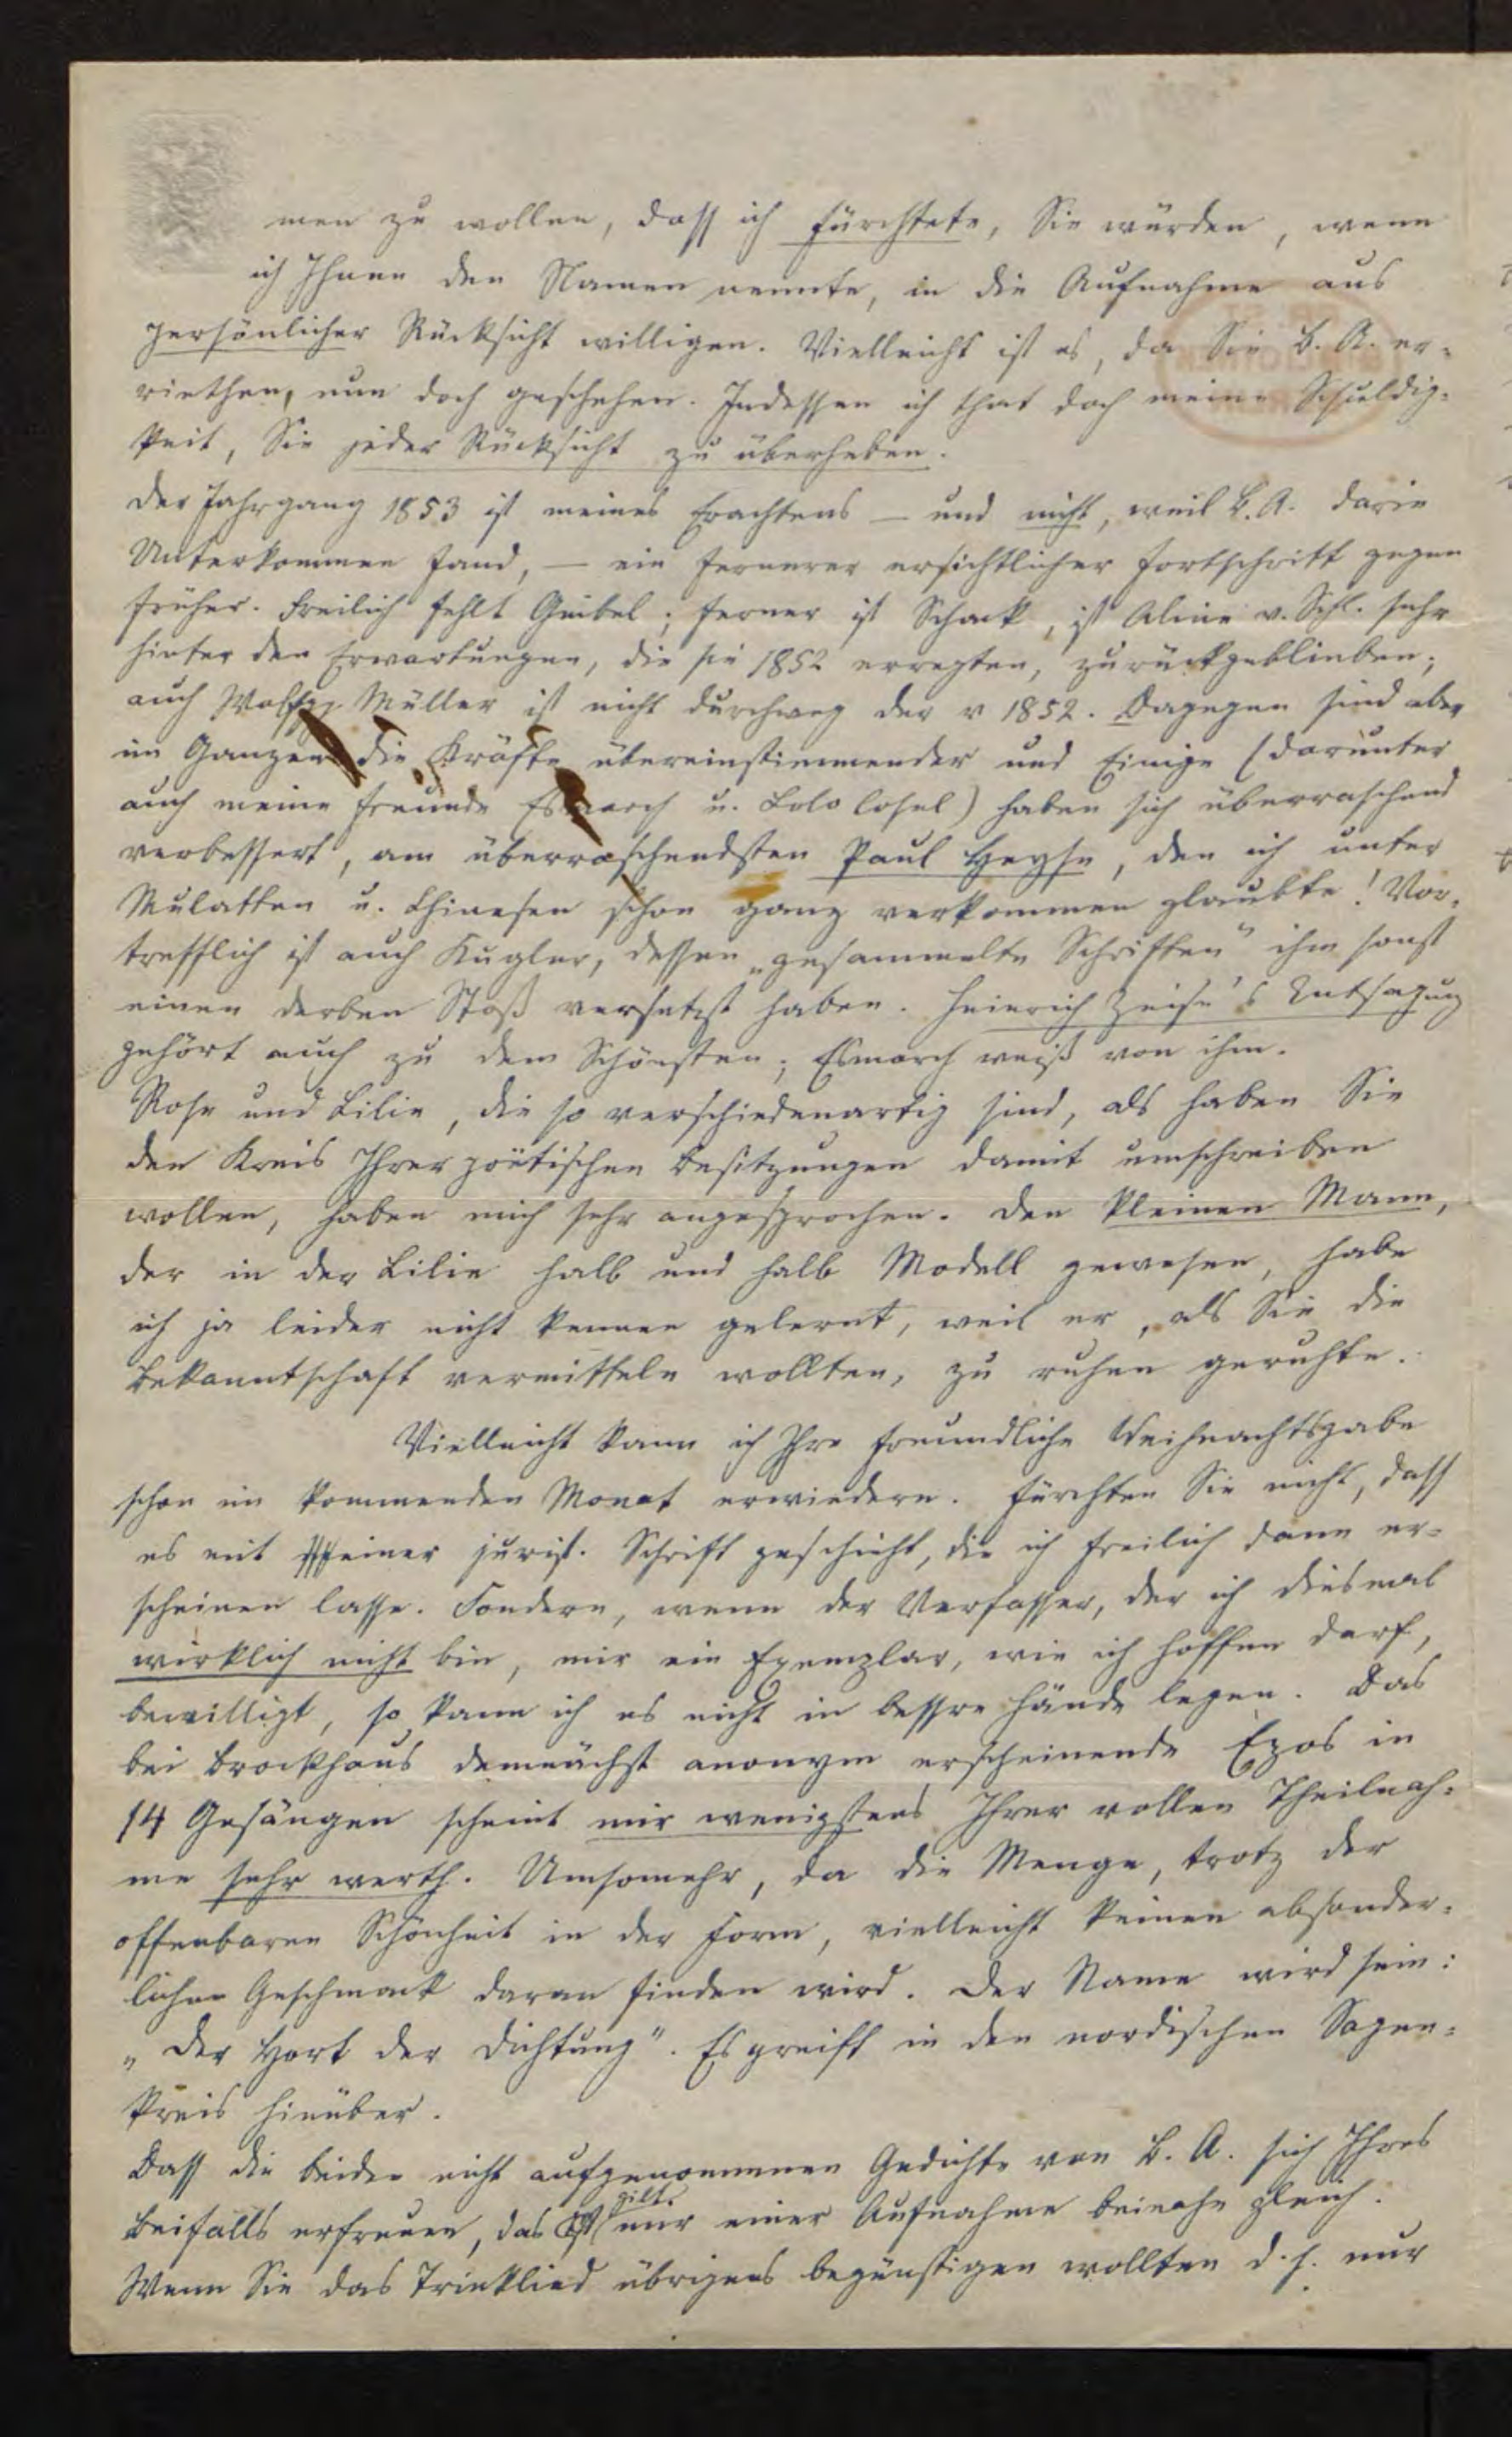 men zu wollen, dass ich fürchtete, Sie würden, wenn
ich Ihnen den Namen nennte, in die Aufnahme aus
persönlicher Rücksicht willigen. Vielleicht ist es, da Sie B. A. er-
riethen, nun doch geschehen. Indessen ich that doch meine Schuldig-
keit, Sie jeder Rücksicht zu überheben.
Der Jahrgang 1853 ist meines Erachtens – und nicht, weil B. A. darin
Unterkommen fand, – ein fernerer ersichtlicher Fortschritt gegen
früher. Freilich fehlt Geibel; ferner ist Schack, ist Aline v. Schl. sehr
hinter den Erwartungen, die sie 1852 erregten, zurückgeblieben;
auch Wolfgg Müller ist nicht durchweg der v 1852. Dagegen sind aber
im Ganzen die Kräfte übereinstimmender und Einige (darunter
auch meine Freunde Esmarch u. ) haben sich überraschend
verbessert, am überraschendsten Paul Heyse, den ich unter
Mulatten u. Chinesen schon ganz verkommen glaubte! Vor-
trefflich ist auch Kugler, dessen „gesammelte Schriften" ihm sonst
einen derben Stoß versetzt haben. Heinrich Zeise's Entsagung
gehört auch zu dem Schönsten; Esmarch weiß von ihm.
Rose und Lilie, die so verschiedenartig sind, als haben Sie
den Kreis Ihrer poëtischen Besitzungen damit umschreiben
wollen, haben mich sehr angesprochen. Den kleinen Mann,
der in der Lilie halb und halb Modell gewesen, habe
ich ja leider nicht kennen gelernt, weil er, als Sie die
Bekanntschaft vermitteln wollten, zu ruhen geruhte.
Vielleicht kann ich Ihre freundliche Weihnachtsgabe
schon im kommenden Monat erwiedern. Fürchten Sie nicht, dass
es mit einer jurist. Schrift geschieht, die ich freilich dann er-
scheinen lasse. Sondern, wenn der Verfasser, der ich diesmal
wirklich nicht bin, mir ein Exemplar, wie ich hoffen darf,
bewilligt, so kann ich es nicht in bessre Hände legen. Das
bei Brockhaus demnächst anonym erscheinende Epos in
14 Gesängen scheint mir wenigstens Ihrer vollen Theilnah-
me sehr werth. Umsomehr, da die Menge, trotz der
offenbaren Schönheit in der Form, vielleicht keinen absonder-
lichen Geschmack daran finden wird. Der Name wird sein:
„Der Hort der Dichtung". Es greift in den nordischen Sagen-
kreis hinüber.
Dass die beiden nicht aufgenommenen Gedichte von B. A. sich Ihres
Beifalls erfreuen, das gilt mir einer Aufnahme beinahe gleich.
Wenn Sie das Trinklied übrigens begünstigen wollten d. h. nur